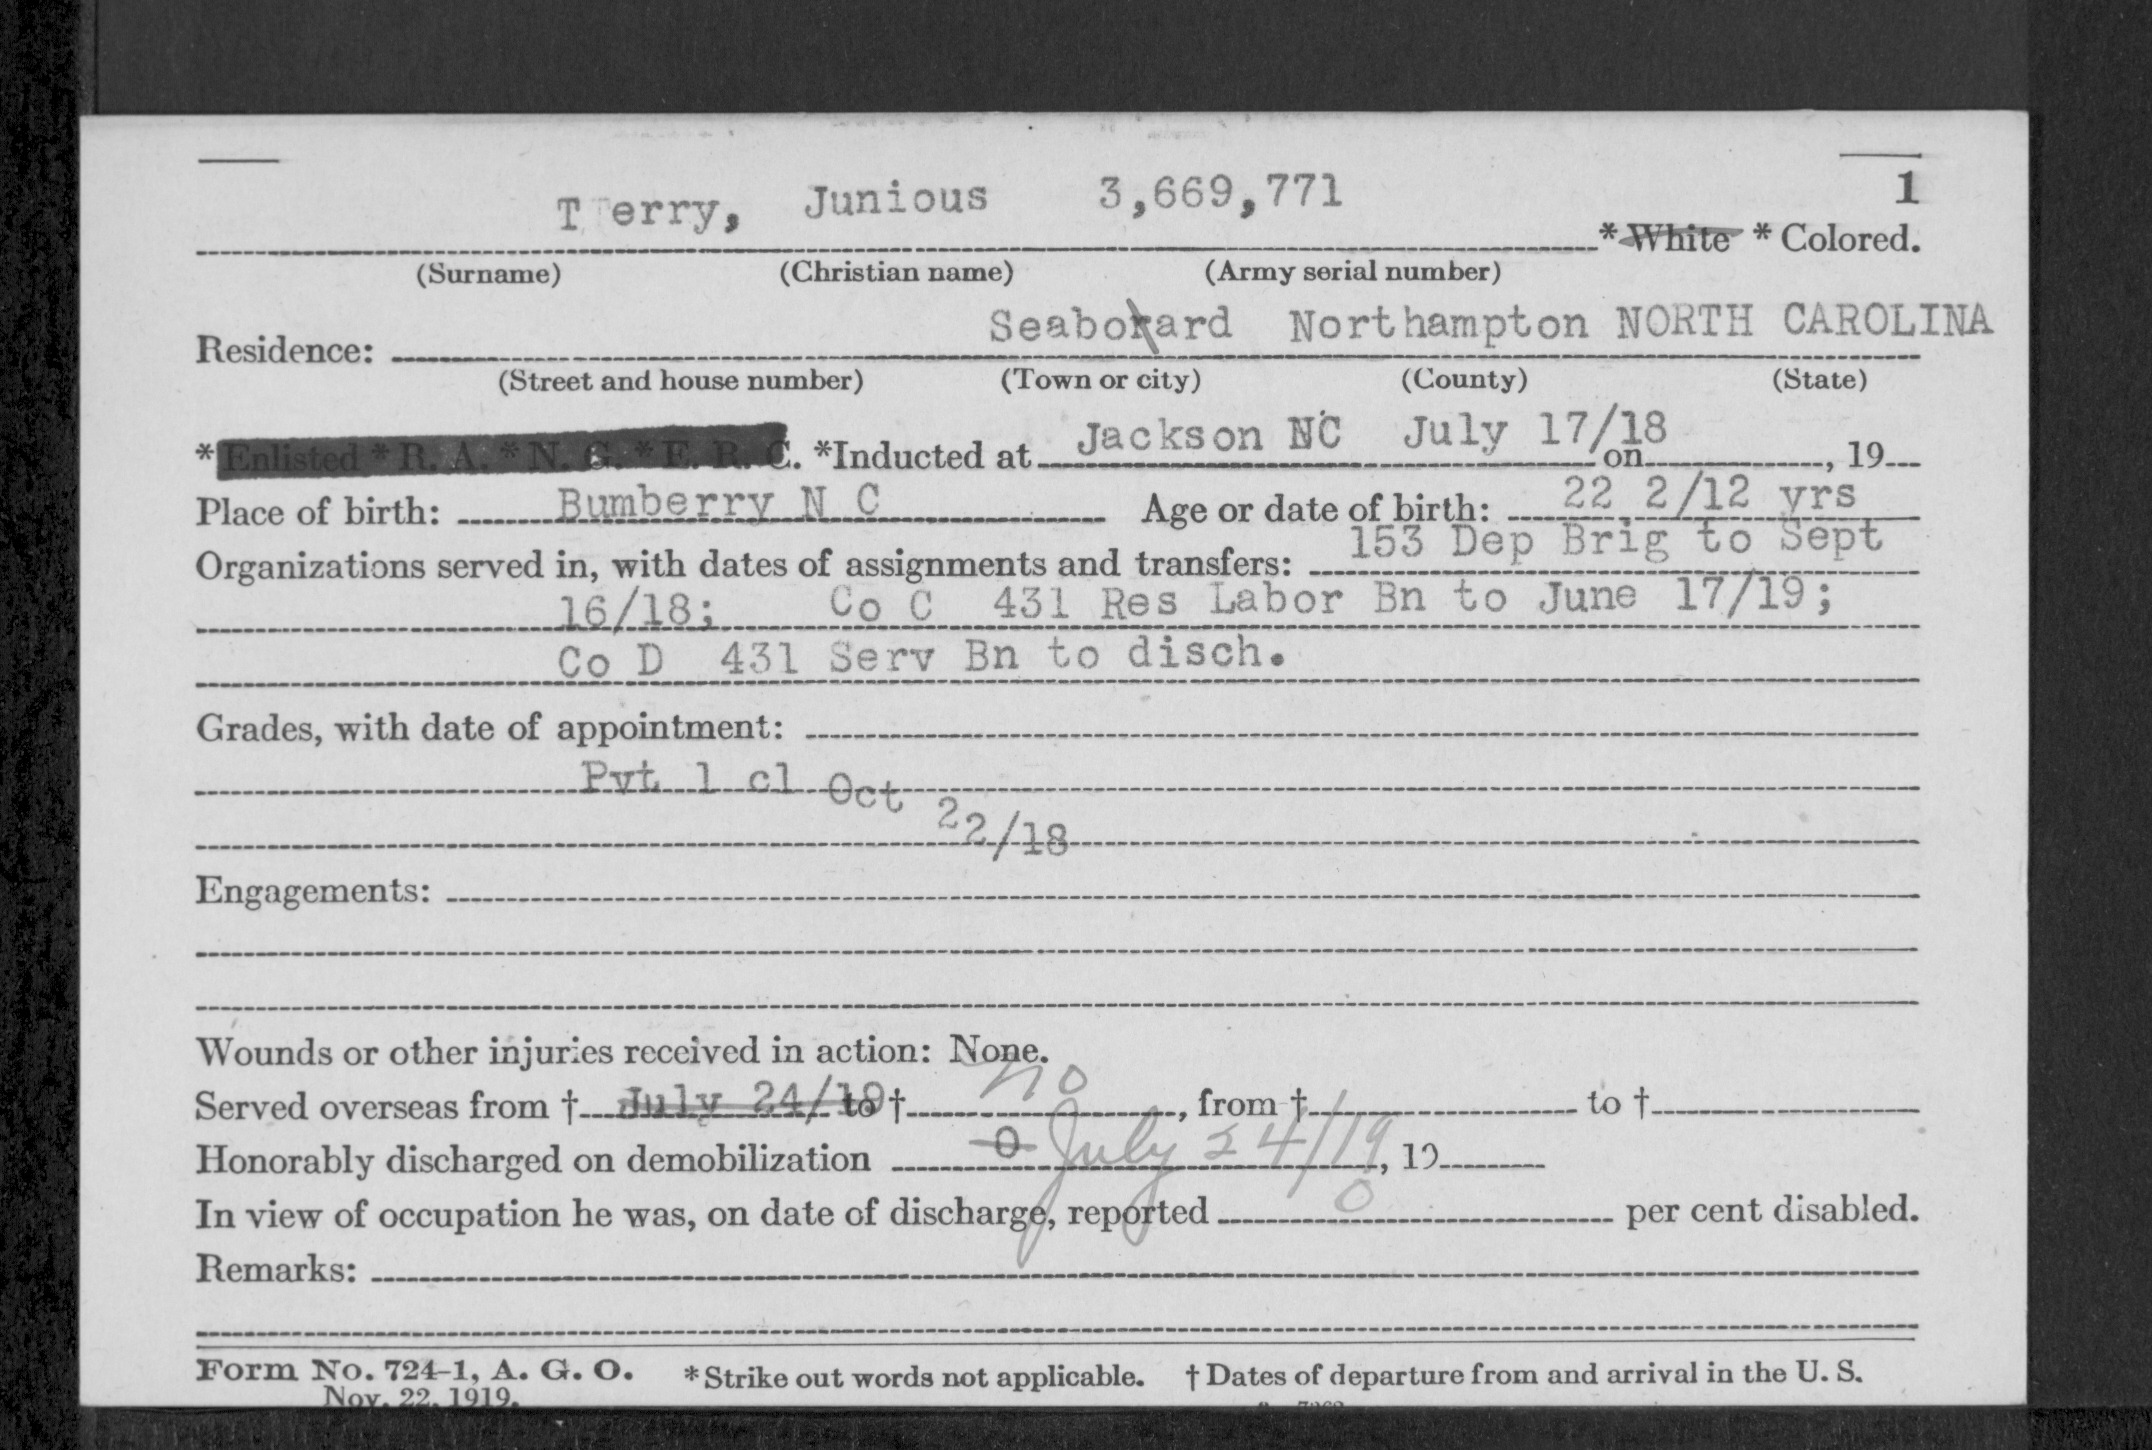 Terry, Junious 3,669,771 1
*White *Colored.
(Surname) (Christian name) (Army serial number)
Seaborard Northampton NORTH CAROLINA
Residence:
(Street and house number) (Town or city) (County) (State)
*Enlisted *R. A. *N. G. *E. R. C. *Inducted at Jackson NC on July 17/18, 19
Place of birth: Bumberry N C Age or date of birth: 22 2/12 yrs
Organizations served in, with dates of assignments and transfers: 153 Dep Brig to Sept
16/18; Co C 431 Res Labor Bn to June 17/19;
Co D 431 Serv Bn to disch.
Grades, with date of appointment:
Pvt 1 cl Oct 22/18
Engagements:
Wounds or other injuries received in action: None.
Served overseas from † July 24/19 to † no, from † to †
Honorably discharged on demobilization 0 July 24/19, 19
In view of occupation he was, on date of discharge, reported 0 per cent disabled.
Remarks:
Form No. 724-1, A. G. O. *Strike out words not applicable. † Dates of departure from and arrival in the U. S.
Nov. 22, 1919.